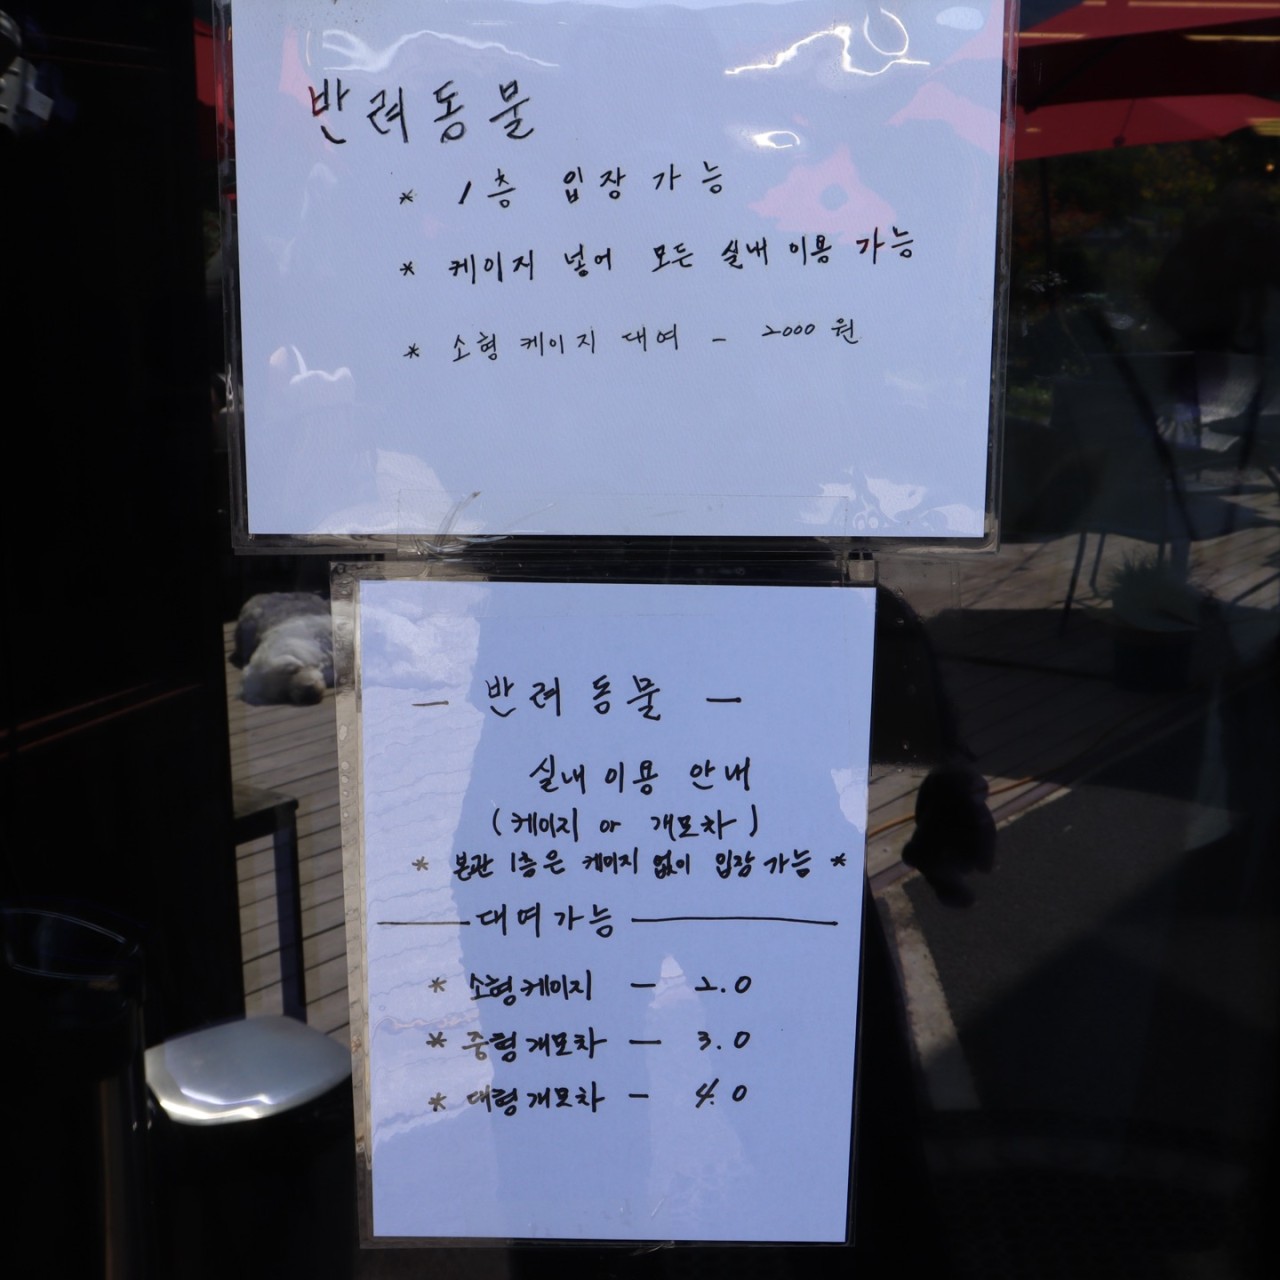 반려동물
* 1층 입장 가능
* 케이지 넣어 모든 실내 이용 가능
* 소형 케이지 대여 - 2000원
- 반려동물 -
실내이용 안내
(케이지 or 개모차)
* 본관 1층은 케이지 없이 입장 가능 *
대여가능
* 소형케이지 - 2.0
* 중형개모차 - 3.0
* 대형개모차 - 4.0